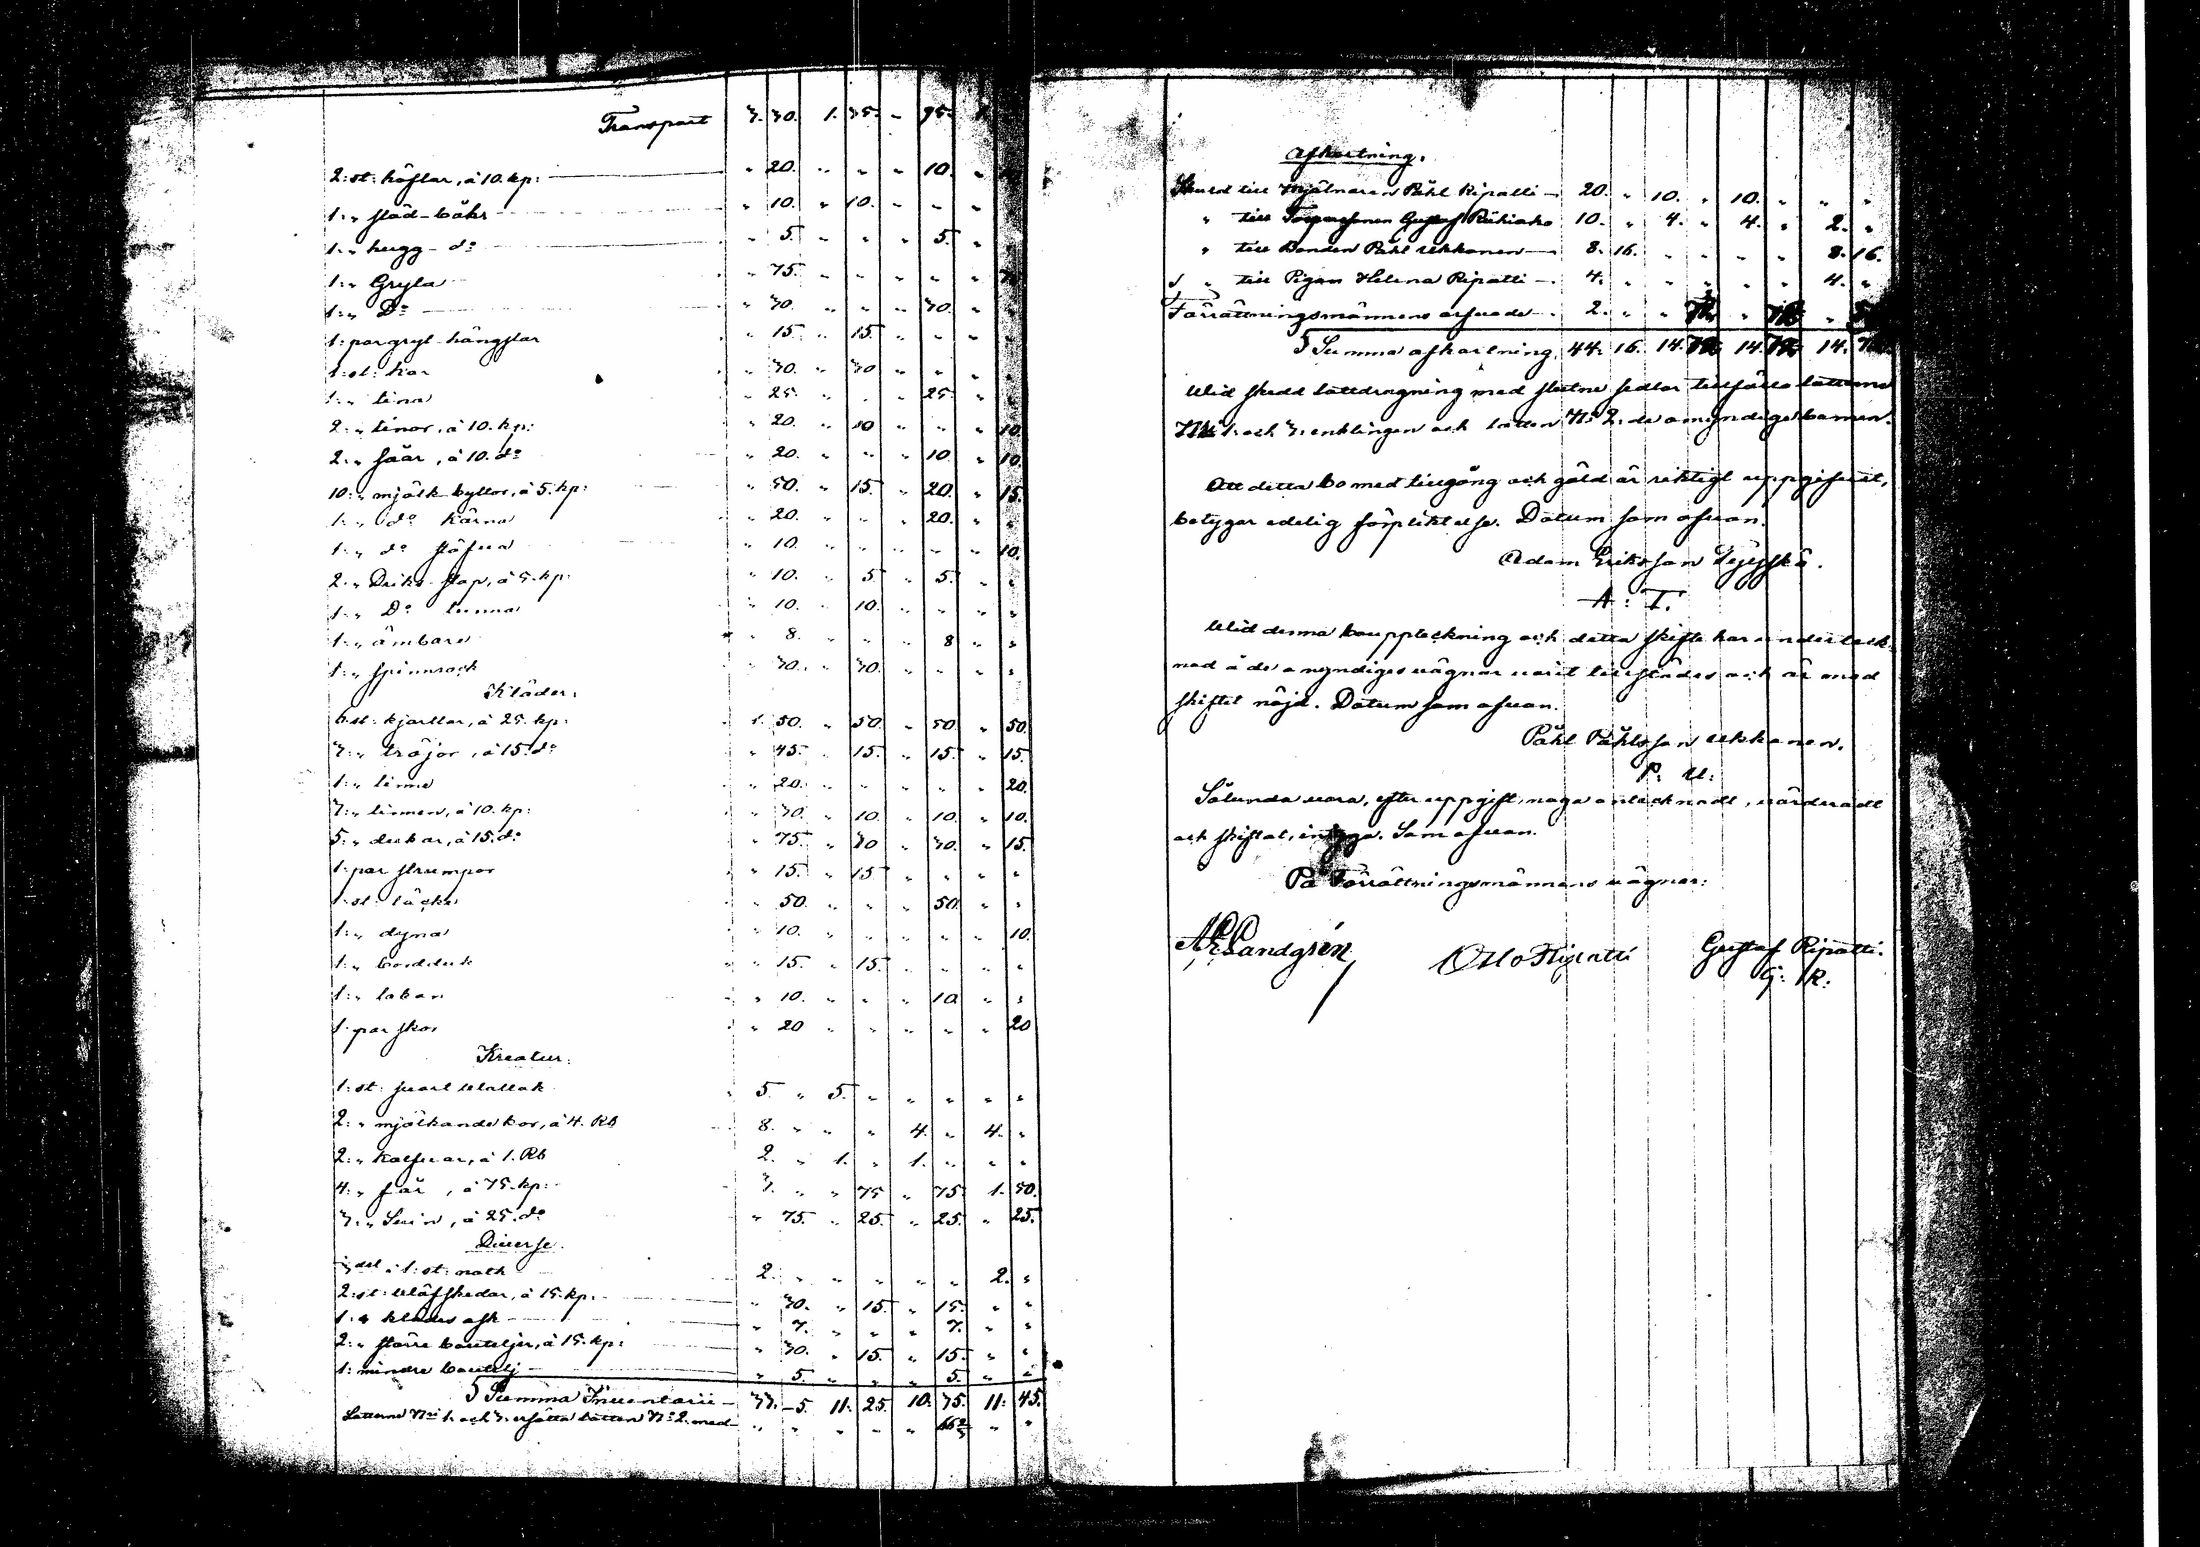 Transport 3. 30. 1. 35. " 95. 1.
2: st: höflar, á 10. kp: " 20. " " " 10. "
1: " städ-båkr " 10. " 10. " " "
1: " hugg- d:o " 5. " " " 5. "
1: " Gryta " 75. " " " " "
1: " D:o " 30. " " " 30. " "
1: par gryt-hängslar " 15. " 15. " " " "
1: st: kar " 30. " 30 " " " "
1: " tina " 25. " " " 25. " "
2: " tinor, á 10. kp: " 20. " 10 " " " 10.
2: " såar, á 10. d:o " 20. " " " 10. " 10.
10: " mjölk-byttor, á 5. kp: " 50. " 15. " 20. " 15.
1: " d:o kärna " 20. " " " 20. " "
1: " d:o stäfva " 10. " " " " " 10.
2: " Driks-stop, á 5. kp: " 10. " 5. " 5. " "
1: " D:o tunna " 10. " 10. " " " "
1: " ämbare " 8. " " " 8 " "
1: " spinnrock " 30. " 30. " " " "
Kläder:
6. st: kjortlar, á 25. kp: 1. 50. " 50. " 50. " 50.
3: " tröjor, á 15. d:o " 45. " 15. " 15. " 15.
1: " linne " 20. " " " " " 20.
3: " linnen, á 10. kp: " 30. " 10. " 10. " 10.
5: " dukar, á 15. d:o " 75. " 30 " 30. " 15.
1: par strumpor " 15. " 15 " " " "
1: st: täcke " 50. " " " 50. " "
1: " dyna " 10. " " " " " 10.
1: " bordduk " 15. " 15. " " " "
1: " lakan " 10. " " " 10. " "
1: par skor " 20 " " " " " 20
Kreatur:
1: st: svart Wallak 5. " 5. " " " " "
2: " mjölkande kor, á 4. Rb 8. " " " 4. " 4. "
2: " kalfvar, á 1. Rb 2. " 1. " 1. " " "
4: " får, á 75. kp: 3. " " 75 " 75. 1. 50.
3: " Svin, á 25. d:o " 75. " 25. " 25. " 25.
Diverse.
del i 1: st: notk 2. " " " " " 2. "
2: st: Wäfskedar, á 15. kp: " 30. " 15. " 15. " "
1: " klädes ask " 7. " " " 7. " "
2: " större bouteljer, á 15. kp: " 30. " 15. " 15. " "
1: mindre boutelj " 5. " " " 5. " "
Summa Inventarii 33. 5. 11. 25. 10. 35. 11. 45.
Lotterne N:ris 1. och 3. ersätta lotten N:o 2. med " " " " " " "
Afkortning.
Skuld till Mjölnaren Påhl Ripatti 20. " 10. " 10. " " "
" till Torparsonen Gustaf 10. " 4. " 4. " 2. "
" till Bonden Påhl Ukkonen 8. 16. " " " " 8. 16.
" till Pigan Helena Ripatti 4. " " " " " 4. "
Förrättningsmännens arfvode 2. " " "
Summa afkortning 44. 16. 14. 14. 14.
Wid skedd lottdragning med slutne sedlar tillföllo lotterne
N:ris 1. och 3. enklingen och lotten N:o 2. de omyndige barnen.
Att detta bo med tillgång och gäld är riktigt uppgifvit,
betygar edelig förpliktelse. Datum som ofvan.
Adam Eriksson
A: T.
Wid denna bouppteckning och detta skifte har underteck-
nad å de omyndiges vägnar varit tillstädes och är med
skiftet nöjd. Datum som ofvan.
Påhl Påhlsson Ukkonen.
P: U:
Sålunda vara, efter uppgift, noga antecknadt, värderadt
och skiftat, intyga. Som ofvan.
På Förrättningsmännens vägnar:
Sandgrén Otto Gustaf Ripatti.
G: R: